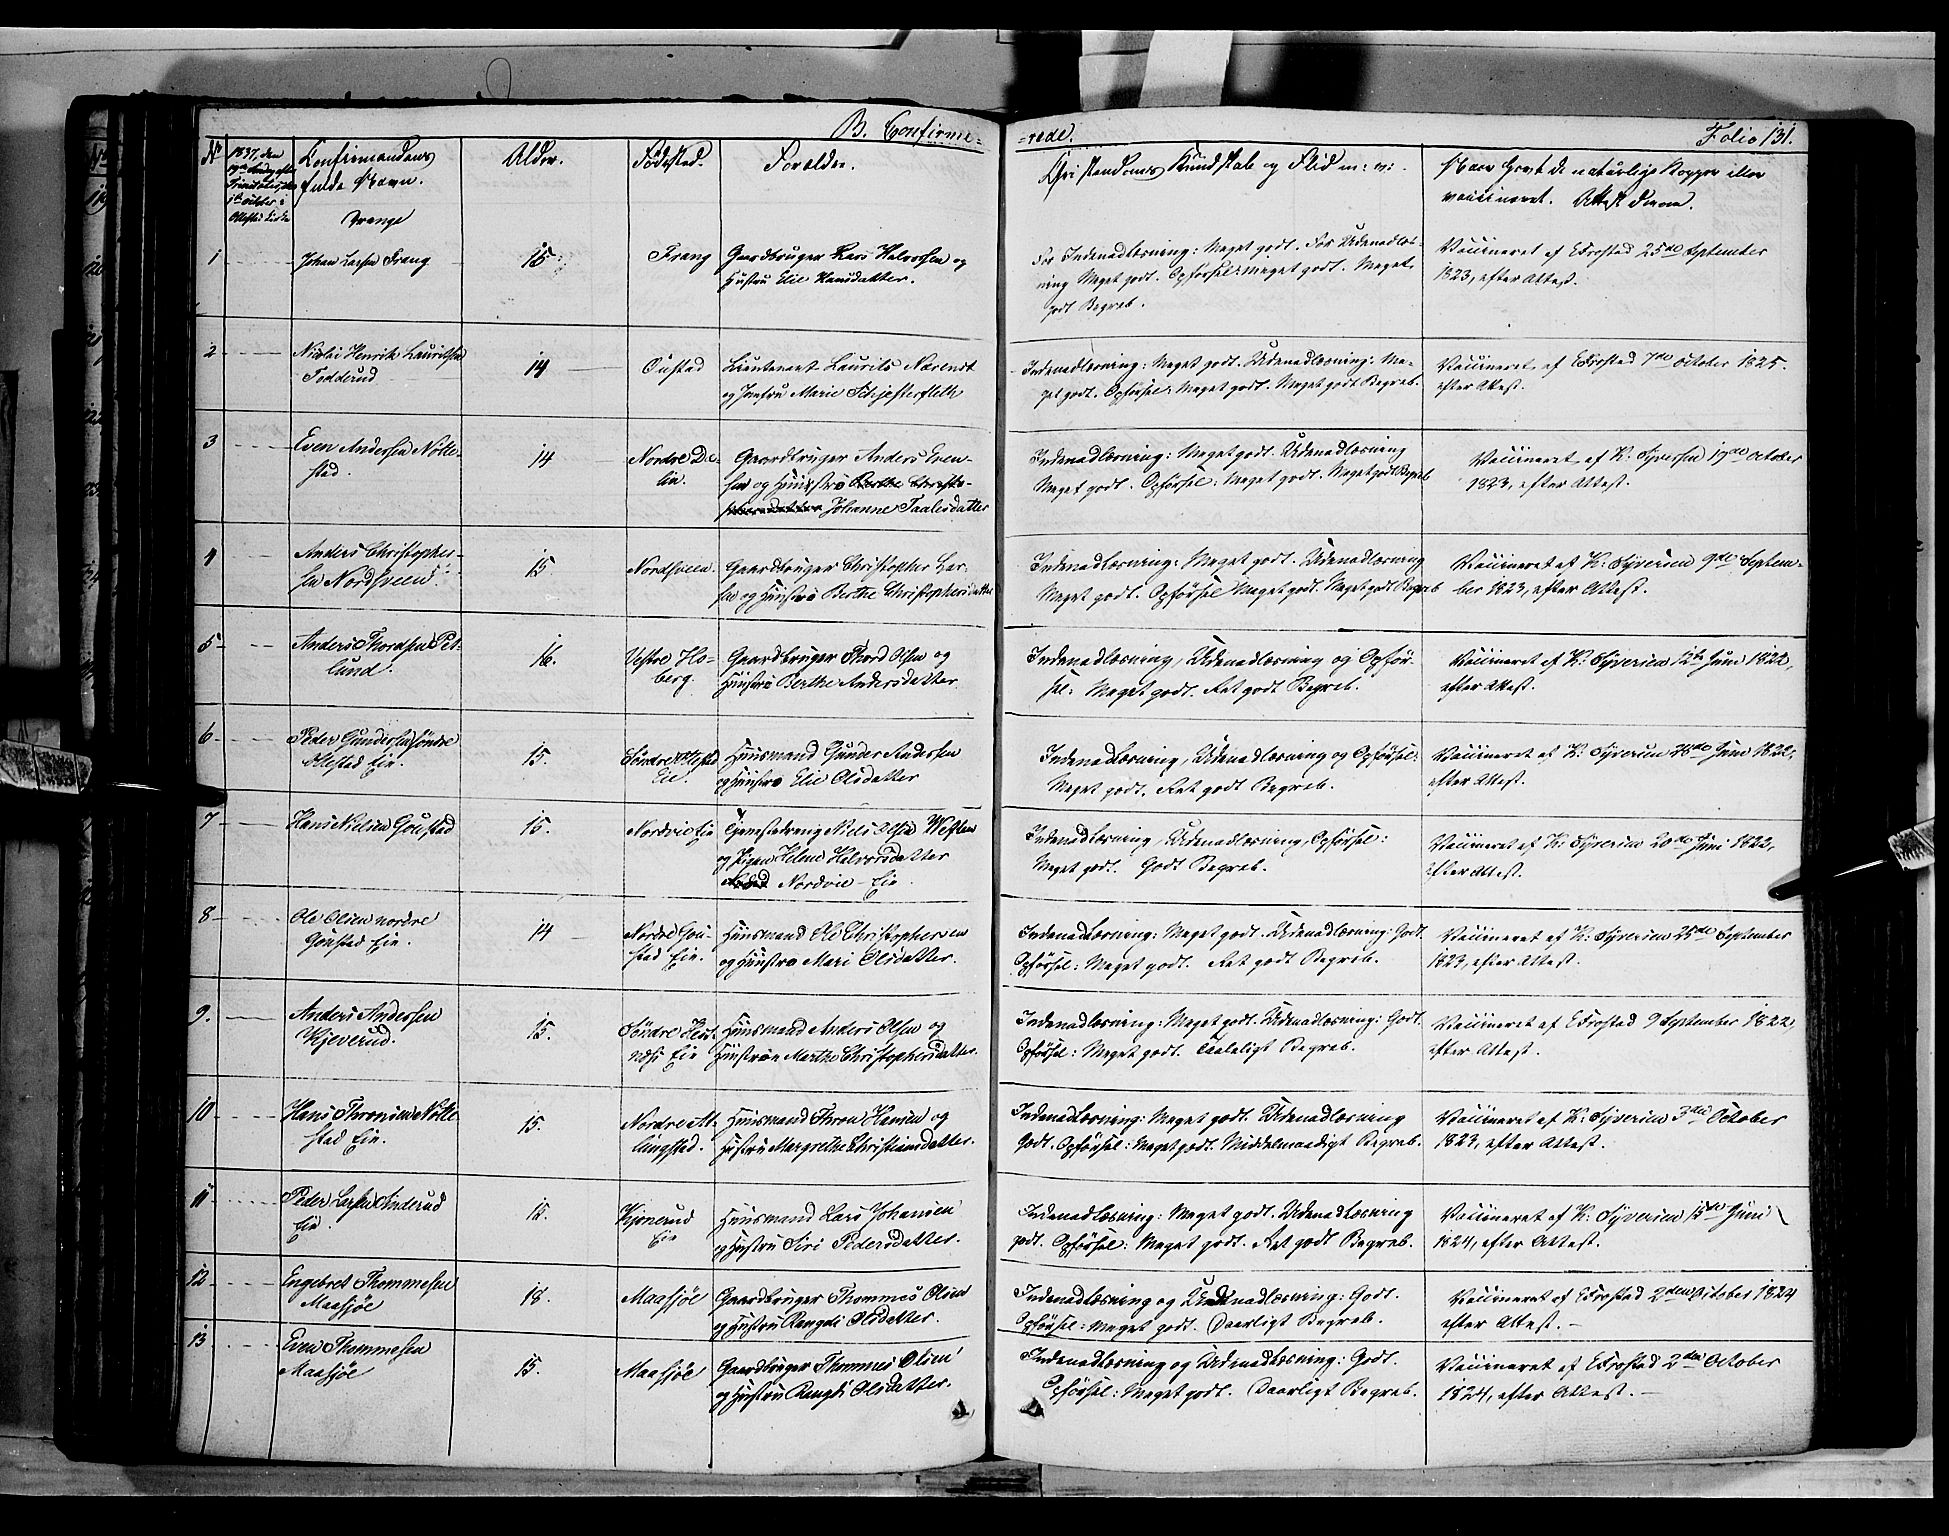 B. Confirme-
-rede.
Folio 131.
No
1837, den
Confirmandens
fulde Navn.
Drenge
Alder.
Fødested.
Forældre.
Christendoms Kundskab og Flid m: v:
Naar Havt de naturlige Kopper eller
vaccineret. Attest derom.
1
Johan Larsen Frang
15
Frang
Gaardbruger Lars Halvorsen og
Hustru Elie Hansdatter.
For Indenadlæsning: Meget godt. For Udenadlæs-
ning Meget godt. Opførsel: meget godt. Meget
godt Begreb.
Vaccineret af Efrostad 25de September
1823, efter Attest.
2
Nicolai Henrik Lauritsen
Todderud
14
Oustad
Lieutenant Laurits Nærenst
og Jomfru Marie Schjesterfleth
Indenadlæsning: Meget godt. Udenadlæsning: Me-
get godt. Opførsel: Meget godt. Meget godt Begreb.
Vaccineret af Efrostad 7de October 1825.
efter Attest.
3
Even Andersen Nøtte-
stad.
14
Nordre De-
lin.
Gaardbruger Anders Even-
sen og Huustro Johanne Taalesdatter
Indenadlæsning: Meget godt. Udenadlæsning
Meget godt. Opførsel: Meget godt. Meget godt Begreb
Vaccineret af K: Syversen 17de October
1823, efter Attest.
4
Anders Christopher-
sen Nordsveen.
15
Nordsveen
Gaardbruger Christopher Lar-
sen og Huustro Berthe Christophersdatter
Indenadlæsning: Meget godt. Udenadlæsning
Meget godt. Opførsel Meget godt. Meget godt Begreb
Vaccineret af K: Syversen 9de Septem-
ber 1823, efter Attest.
5
Anders Thordsen Pet-
lund.
16.
Vestre Ho-
berg.
Gaardbruger Thord Olsen og
Huustro Berthe Andersdatter
Indenadlæsning, Udenadlæsning og Opfør-
sel: Meget godt. Ret godt Begreb.
Vaccineret af K: Syversen 12te Juni 1822,
efter Attest.
6
Peder Gundersen Søndre
Ollestad Eie.
15.
Søndre Ollestad
Eie.
Huusmand Gunder Andersen
og Huustro Elie Olsdatter
Indenadlæsning, Udenadlæsning og Opførsel:
Meget godt. Ret godt Begreb.
Vaccineret af K: Syversen 28de Juni 1822,
efter Attest.
7
Hans Nielsen Goustad
15.
Nordvie Eie
Tjenestedreng Niels Olsen Weflen
og Pigen Helene Halvorsdatter
Nordvie-Eie.
Indenadlæsning, Udenadlæsning, Opførsel:
Meget godt. Godt Begreb.
Vaccineret af K: Syversen 20de Juni 1822,
efter Attest.
8
Ole Olsen nordre
Goustad Eie.
14
Nordre Gou-
stad Eie.
Huusmand Ole Christophersen
og Huustro Mari Olsdatter.
Indenadlæsning: Meget godt. Udenadlæsning: Godt.
Opførsel: Meget godt. Ret godt Begreb.
Vaccineret af K: Syversen 25de September
1823, efter Attest.
9.
Anders Andersen
Kjeverud.
15.
Søndre Hest-
næss Eie
Huusmand Anders Olsen og
Huustroe Marthe Christophersdatter.
Indenadlæsning: Meget godt. Udenadlæsning: Godt.
Opførsel: Meget godt. Taaleligt Begreb.
Vaccineret af Efrostad 9 September 1822,
efter Attest.
10
Hans Thronsen Nøtte
stad Eie.
15.
Nordre At-
lungstad.
Huusmand Thron Hansen og
Hustru Margrethe Christiansdatter.
Indenadlæsning: Meget godt. Udenadlæsning
Godt. Opførsel: Meget godt. Middelmaadigt Begreb.
Vaccineret af K: Syversen 3die October
1823, efter Attest.
11
Peder Larsen Anderud
Eie.
15.
Kjonerud
Eie
Huusmand Lars Johansen
og Hustru Siri Pedersdatter.
Indenadlæsning: Meget godt. Udenadlæsning
godt. Opførsel: Meget godt. Ret godt Begreb.
Vaccineret af K: Syversen 15de Juni
1824, efter Attest.
12
Engebret Thommesen
Maasjøe
18.
Maasjøe
Gaardbruger Thommes Olsen
og Hustru Rangdi Olsdatter.
Indenadlæsning og Udenadlæsning: Godt.
Opførsel: Meget godt. Daarligt Begreb.
Vaccineret af Efrostad 2den October 1824
efter Attest. -
13
Even Thommesen
Maasjøe
15.
Maasjøe
Gaardbruger Thommes Olsen
og Hustru Rangdi Olsdatter.
Indenadlæsning og Udenadlæsning: Godt.
Opførsel: Meget godt. Daarligt Begreb.
Vaccineret af Efrostad 2den October
1824, efter Attest. -